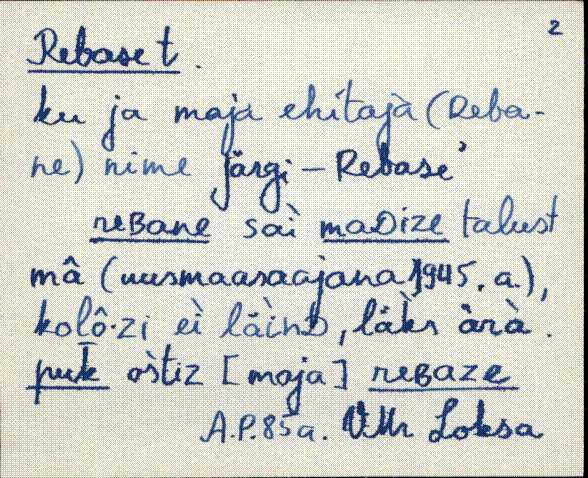 2
Rebase t.
ku ja maja ehitaja (Reba-
ne) nime järgi – Rebase'
reʙane saì maᴅize talust
mâ (uusmaasaajana 1945. a.),
kolô·zi eì läìnᴅ, läks ärà.
puk òstiz [maja] reʙaze
A.P. 85 a. VMr Loksa